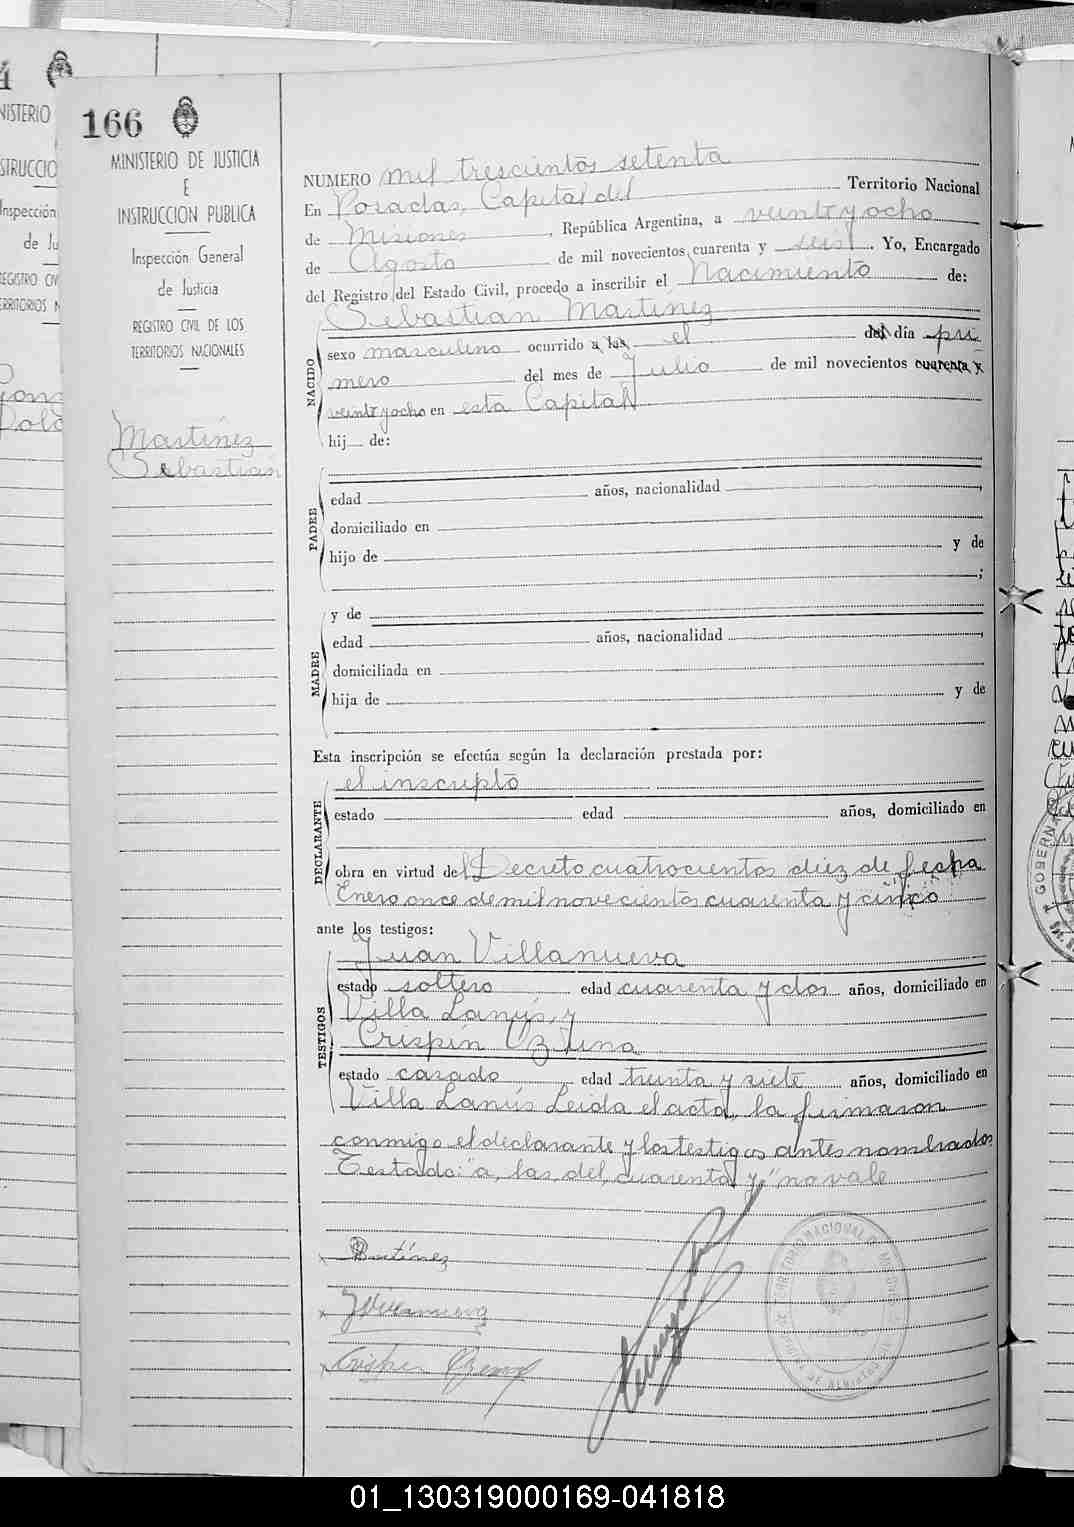 166
MINISTERIO DE JUSTICIA
E
INSTRUCCION PUBLICA
Inspección General
de Justicia
REGISTRO CIVIL DE LOS
TERRITORIOS NACIONALES
Martinez
Sebastian
NUMERO mil trescientos setenta
En Posadas, Capital del Territorio Nacional
de Misiones, República Argentina, a veintiyocho
de Agosto de mil novecientos cuarenta y seis. Yo, Encargado
del Registro del Estado Civil, procedo a inscribir el Nacimiento de:
Sebastian Martinez
NACIDO
sexo masculino ocurrido a las el del día pri
mero del mes de Julio de mil novecientos cuarenta y
veintiyocho en esta Capital
hij de:
PADRE
edad años, nacionalidad ,
domiciliado en
hijo de y de
;
y de
MADRE
edad años, nacionalidad ,
domiciliada en
hija de y de
Esta inscripción se efectúa según la declaración prestada por:
DECLARANTE
el inscripto
estado edad años, domiciliado en
obra en virtud del Decreto cuatrocientos diez de fecha
Enero once de mil novecientos cuarenta y cinco
ante los testigos:
TESTIGOS
Juan Villanueva
estado soltero edad cuarenta y dos años, domiciliado en
Villa Lanús, y
Crispín
estado casado edad treinta y siete años, domiciliado en
Villa Lanús Leida el acta, la firmaron
conmigo el declarante y los testigos antes nombrados
Testado: "a, las, del, cuarenta y" no vale
Martínez
JVillanueva
Crispin
01_130319000169-041818